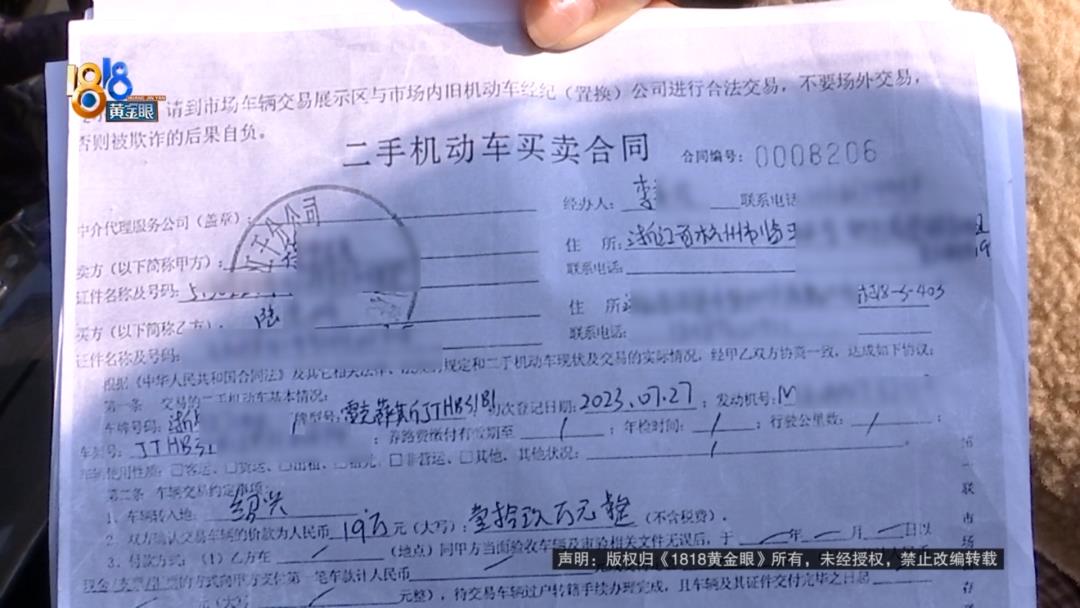 1818
黄金眼
请到市场车辆交易展示区与市场内旧机动车经纪（置换）公司进行合法交易，不要场外交易，
否则被欺诈的后果自负。
二手机动车买卖合同 合同编号：0008206
中介代理服务公司（盖章）： 经办人：李 联系电话
卖方（以下简称甲方）： 住 所：浙江省杭州市临
证件名称及号码： 联系电话：
买方（以下简称乙方）：陆 住 所 3-403
证件名称及号码： 联系电话：
根据《中华人民共和国合同法》及其它相关法律、 规定和二手机动车现状及交易的实际情况，经甲乙双方协商一致，达成如下协议：
第一条 交易的二手机动车基本情况：
车牌号码：浙 牌型号：雷克萨斯JTHB31B1 初次登记日期：2023.07.27；发动机号：M
车架号：JTHB31 ；养路费缴付有效期至 / ；年检时间： / ；行驶公里数： / ；
车辆使用性质：□客运、□货运、□出租、□租赁、□非营运、□其他，其他状况：
第二条 车辆交易约定事项：
1．车辆转入地：绍兴
2．双方确认交易车辆的价款为人民币 19万 元（大写）：壹拾玖万元整（不含税费）。
3．付款方式：（1）乙方在 / （地点）同甲方当面验收车辆及审验相关文件无误后，于 年 月 日以
的方式向甲方支付第一笔车款计人民币
元（大写） 元整），待交易车辆过户转籍手续办理完成，且车辆及其证件交付完毕之日起
第
联
市
场
存
声明：版权归《1818黄金眼》所有，未经授权，禁止改编转载